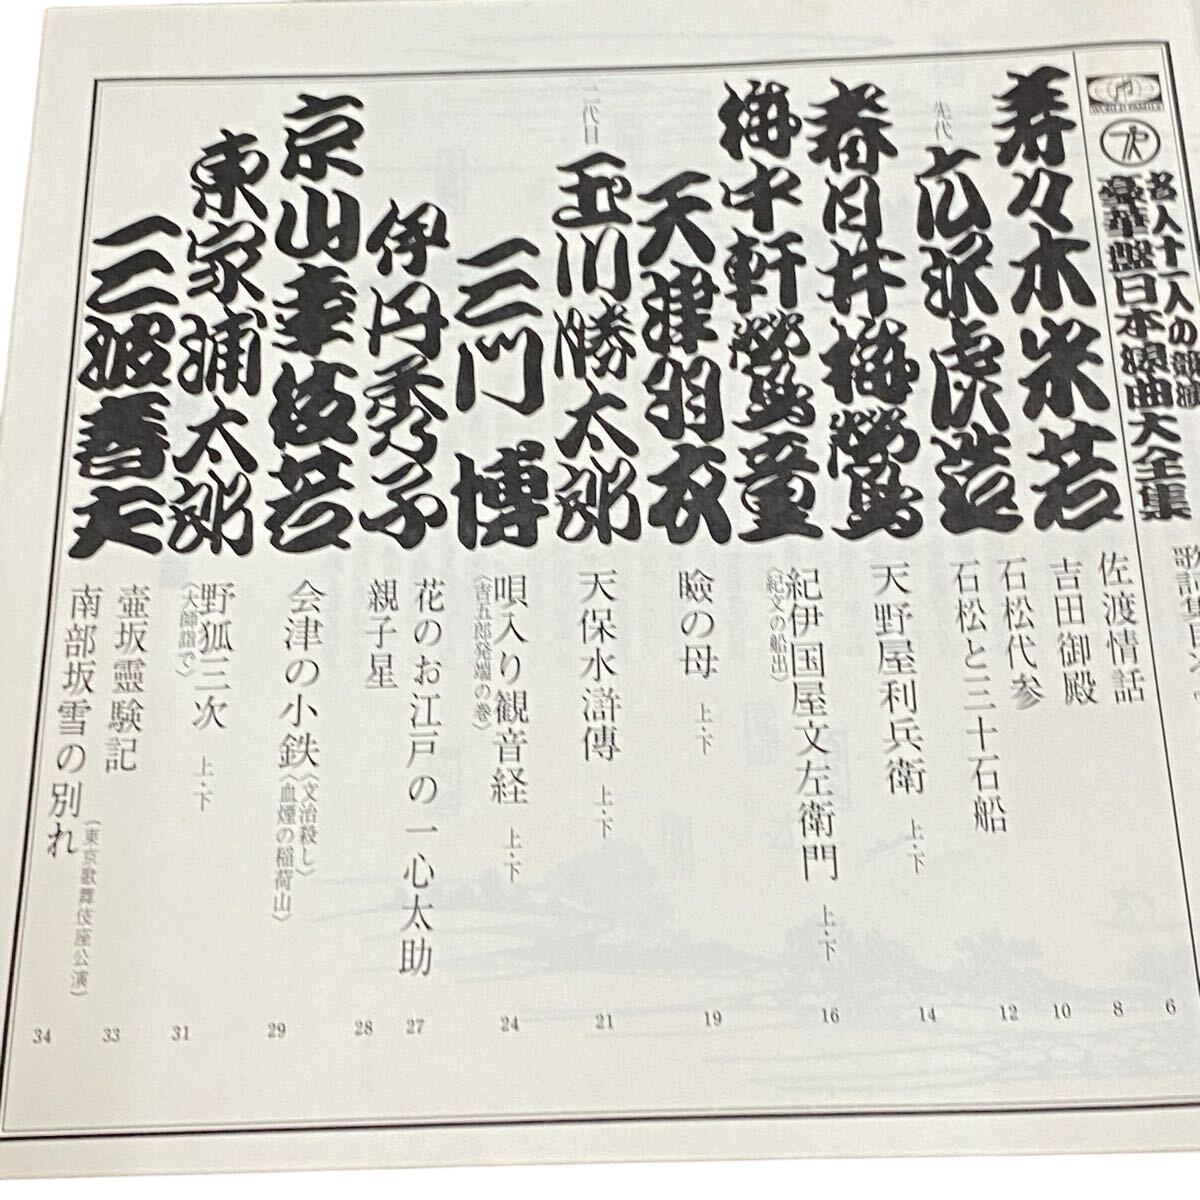 WORLD FAMILY
名人十一人の競演
豪華盤日本浪曲大全集
寿々木米若
佐渡情話
6
吉田御殿
8
先代
広沢虎造
石松代参
10
石松と三十石船
12
春日井梅鶯
天野屋利兵衛 上・下
14
梅中軒鶯童
紀伊国屋文左衛門 上・下
〈紀文の船出〉
16
天津羽衣
瞼の母 上・下
19
二代目
玉川勝太郎
天保水滸傳 上・下
21
三門博
唄入り観音経 上・下
〈吉五郎発端の巻〉
24
伊丹秀子
花のお江戸の一心太助
27
親子星
28
京山幸枝若
会津の小鉄
〈文治殺し〉
〈血煙の稲荷山〉
29
東家浦太郎
野狐三次 上・下
〈大師詣で〉
31
三波春夫
壷坂靈験記
33
南部坂雪の別れ
(東京歌舞伎座公演)
34